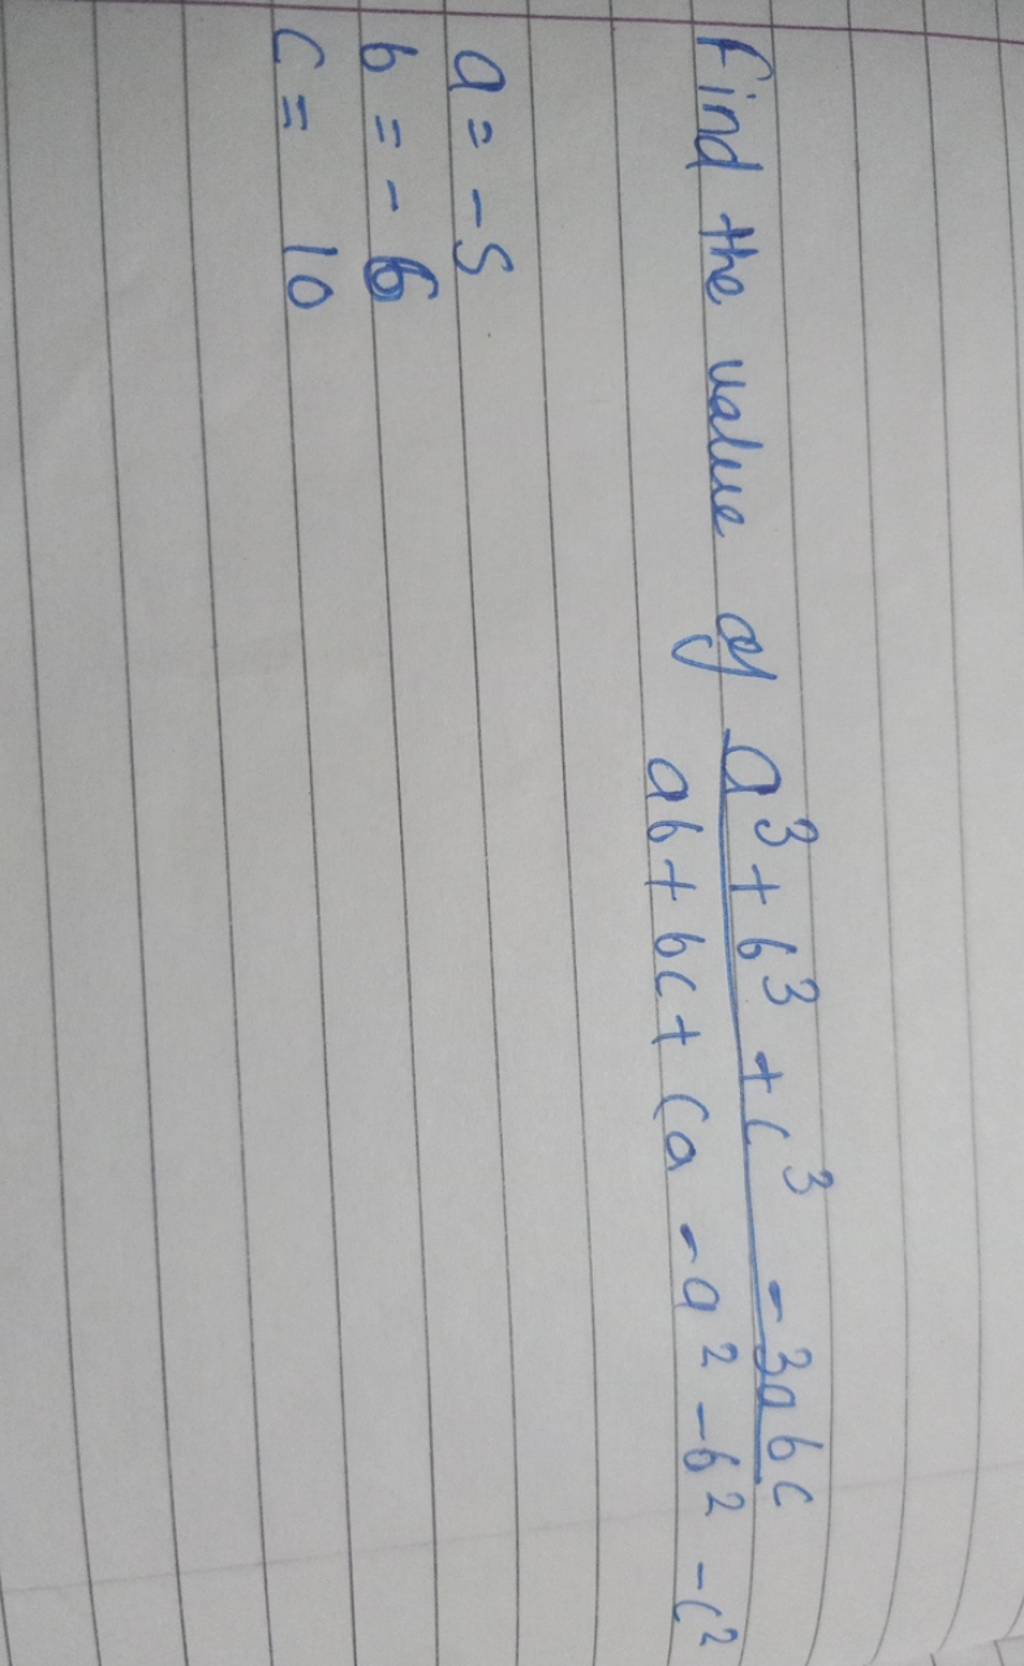 Find the value of a³ + b³ + c³ - 3abc
ab + bc + ca - a² - b² - c²
a = -5
b = - 6
c = 10